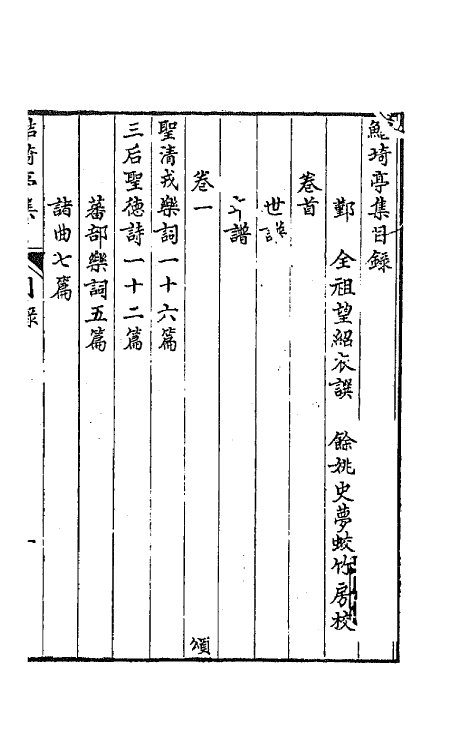 鮚埼亭集目錄
鄞 全祖望紹衣譔 餘姚史夢蛟竹房校
卷首
世譜
年譜
卷一 頌
聖清戎樂詞一十六篇
三后聖德詩一十二篇
蕃部樂詞五篇
諸曲七篇
鮚埼亭集 目錄 一